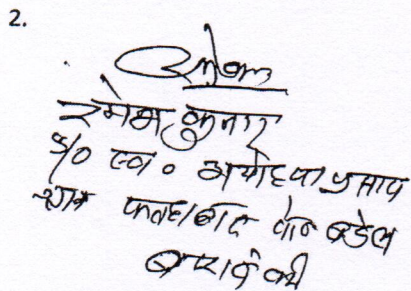 2.
रमेश कुमार
S/o स्व० अयोध्या प्रसाद
ग्राम फतहाबाद पो०
बाराबंकी